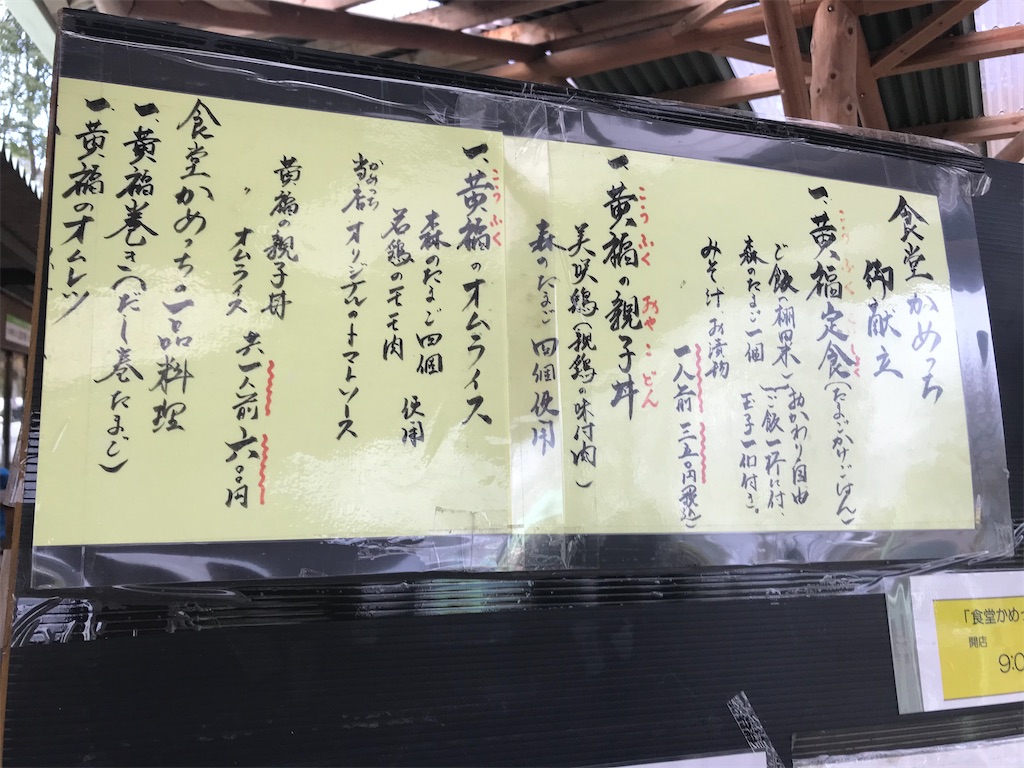 食堂かめっち
御献立
一、黄福定食(たまごかけごはん)
こうふく
ご飯(棚田米)おかわり自由
森のたまご一個(ご飯一杯に付、玉子一個付き。)
みそ汁、お漬物
一人前 三五〇円(税込)
一、黄福の親子丼
こうふく おやこどん
美咲鶏(親鶏の味付肉)
森のたまご 四個使用
一、黄福のオムライス
こうふく
森のたまご四個
若鶏のモモ肉 使用
当店オリジナルのトマトソース
かめっち
黄福の親子丼
〃 オムライス 共一人前 六〇〇円
食堂かめっちの一品料理
一、黄福巻き(だし巻たまご)
一、黄福のオムレツ
「食堂かめっ
開店
9:0